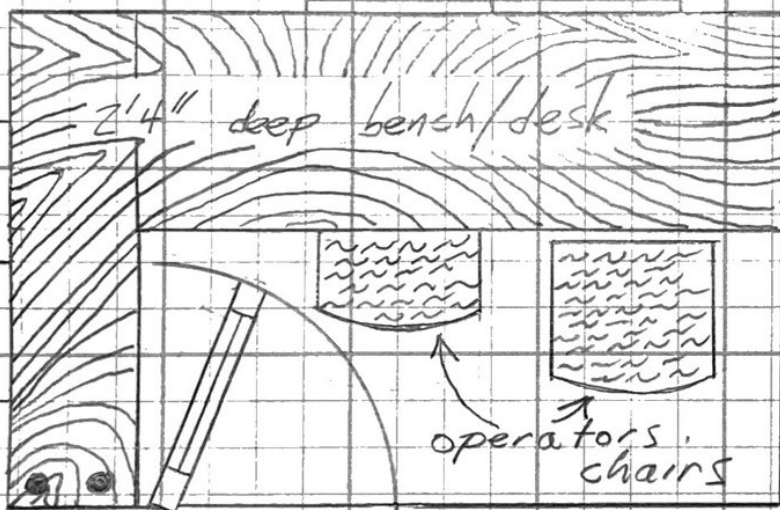 2'4" deep bench/desk
operators.
chairs